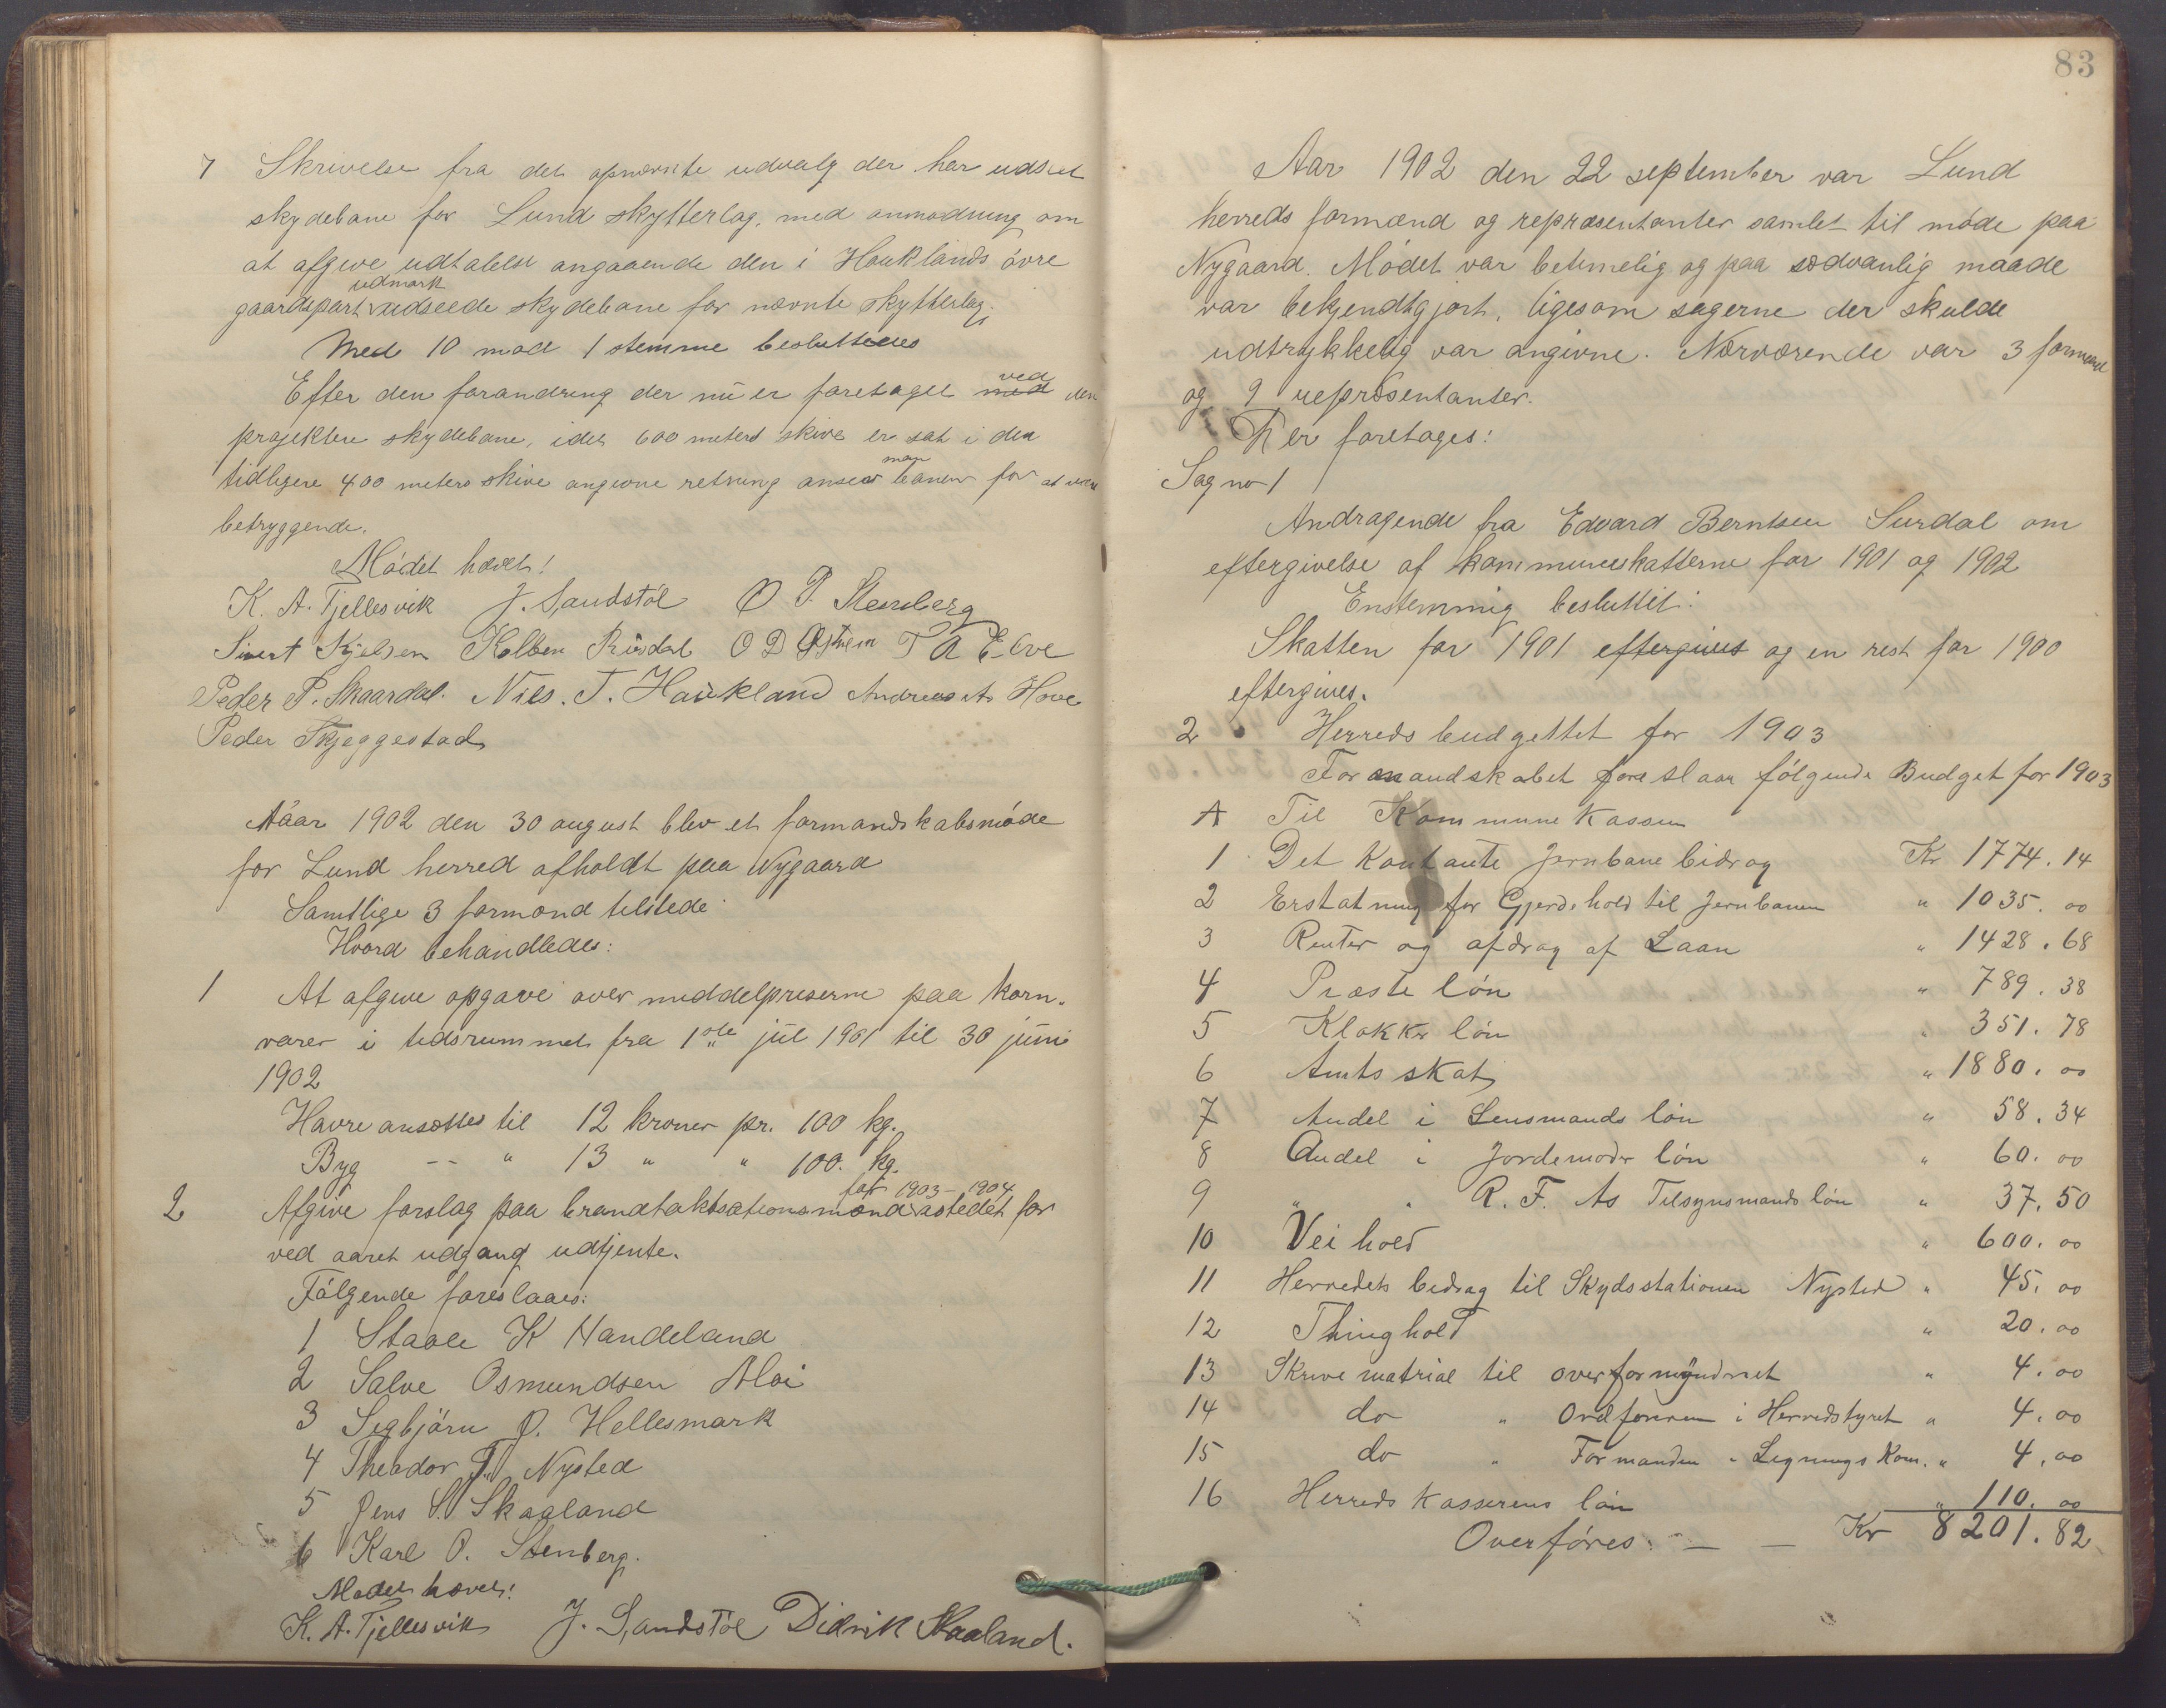 7 Skrivelse fra det opnævnte udvalg der har udset
skydebane for Lund skytterlag, med anmodning om
at afgive udtalelse angaaende den i Hauklands övre
udmark
gaardspart udseede skydebane for nævnte skytterlag.
Med 10 mod 1 stemme besluttedes
Efter den forandring der nu er foretaget med ved den
projektere skydebane, idet 600 meters skive er sat i den
tidligere 400 meters skive angivne retning anser man banen for at være
betryggende.
Mödet hævet!
K. A. Tjellesvik J. Sandstöl O P. Stenberg
Sivert Kjelsen Kolben Rusdal O D Østhem T A Eive
Peder P. Skaardal. Nils. T. Haukland Andreas A. Hove
Peder Skjeggestad
Aaar 1902 den 30 august blev et formandskabsmöde
for Lund herred afholdt paa Nygaard
Samtlige 3 formænd tilstede
Hvord behandledes:
1 At afgive opgave over middelpriserne paa korn-
varer i tidsrummet fra 1ste jul 1901 til 30 juni
1902
Havre ansættes til 12 kroner pr. 100 kg.
Byg -- " 13 " " 100. kg.
for 1903-1904
2 Afgive forslag paa brandtaktsationsmænd istedet for
ved aaret udgang udtjente.
Fölgende foreslaaes:
1 Staale K Handeland
2 Salve Osmundsen Moi
3 Segbjörn O. Hellesmark
4 Theodor T. Nysted
5 Jens S. Skaaland
6 Karl O. Stenberg.
Mödet hævet!
K. A. Tjellesvik J. Sandstöl Didrik Skaaland.
83
Aar 1902 den 22 september var Lund
herreds formænd og repræsentanter samlet til möde paa
Nygaard. Mödet var betimelig og paa sædvanlig maade
var bekjendtgjort, ligesom sagerne der skulde
udtrykkelig var angivne. Nærværende var 3 formænd
og 9 repræsentanter.
Her foretages:
Sag no 1
Andragende fra Edvard Berntsen Surdal om
eftergivelse af kommuneskatterne for 1901 og 1902
Enstemmig besluttet:
Skatten for 1901 eftergives og en rest for 1900
eftergives.
2 Herreds budgettet for 1903
Formandskabet foreslaar fölgende Budget for 1903
A Til Kommune Kassen
1 Det Kontante Jernbane bidrag Kr 1774.14
2 Erstatning for Gjerdehold til Jernbanen " 1035.00
3 Renter og afdrag af Laan " 1428.68
4 Præste lön " 789.38
5 Klokker lön " 351.78
6 Amts skat " 1880.00
7 Andel i Lensmands lön " 58.34
8 Andel i Jordemoder lön " 60.00
9 " " R. F. As Tilsynsmands lön " 37.50
10 Vei hold " 600.00
11 Herredets bidrag til Skydsstationen Nysted " 45.00
12 Thinghold " 20.00
13 Skrive matrial til overformynderiet " 4.00
14 do " Ordföreren i Herredstyret " 4.00
15 do " Formanden " Ligningskom. " 4.00
16 Herreds Kasserens lön " 110.00
Overföres. — — Kr 8201.82